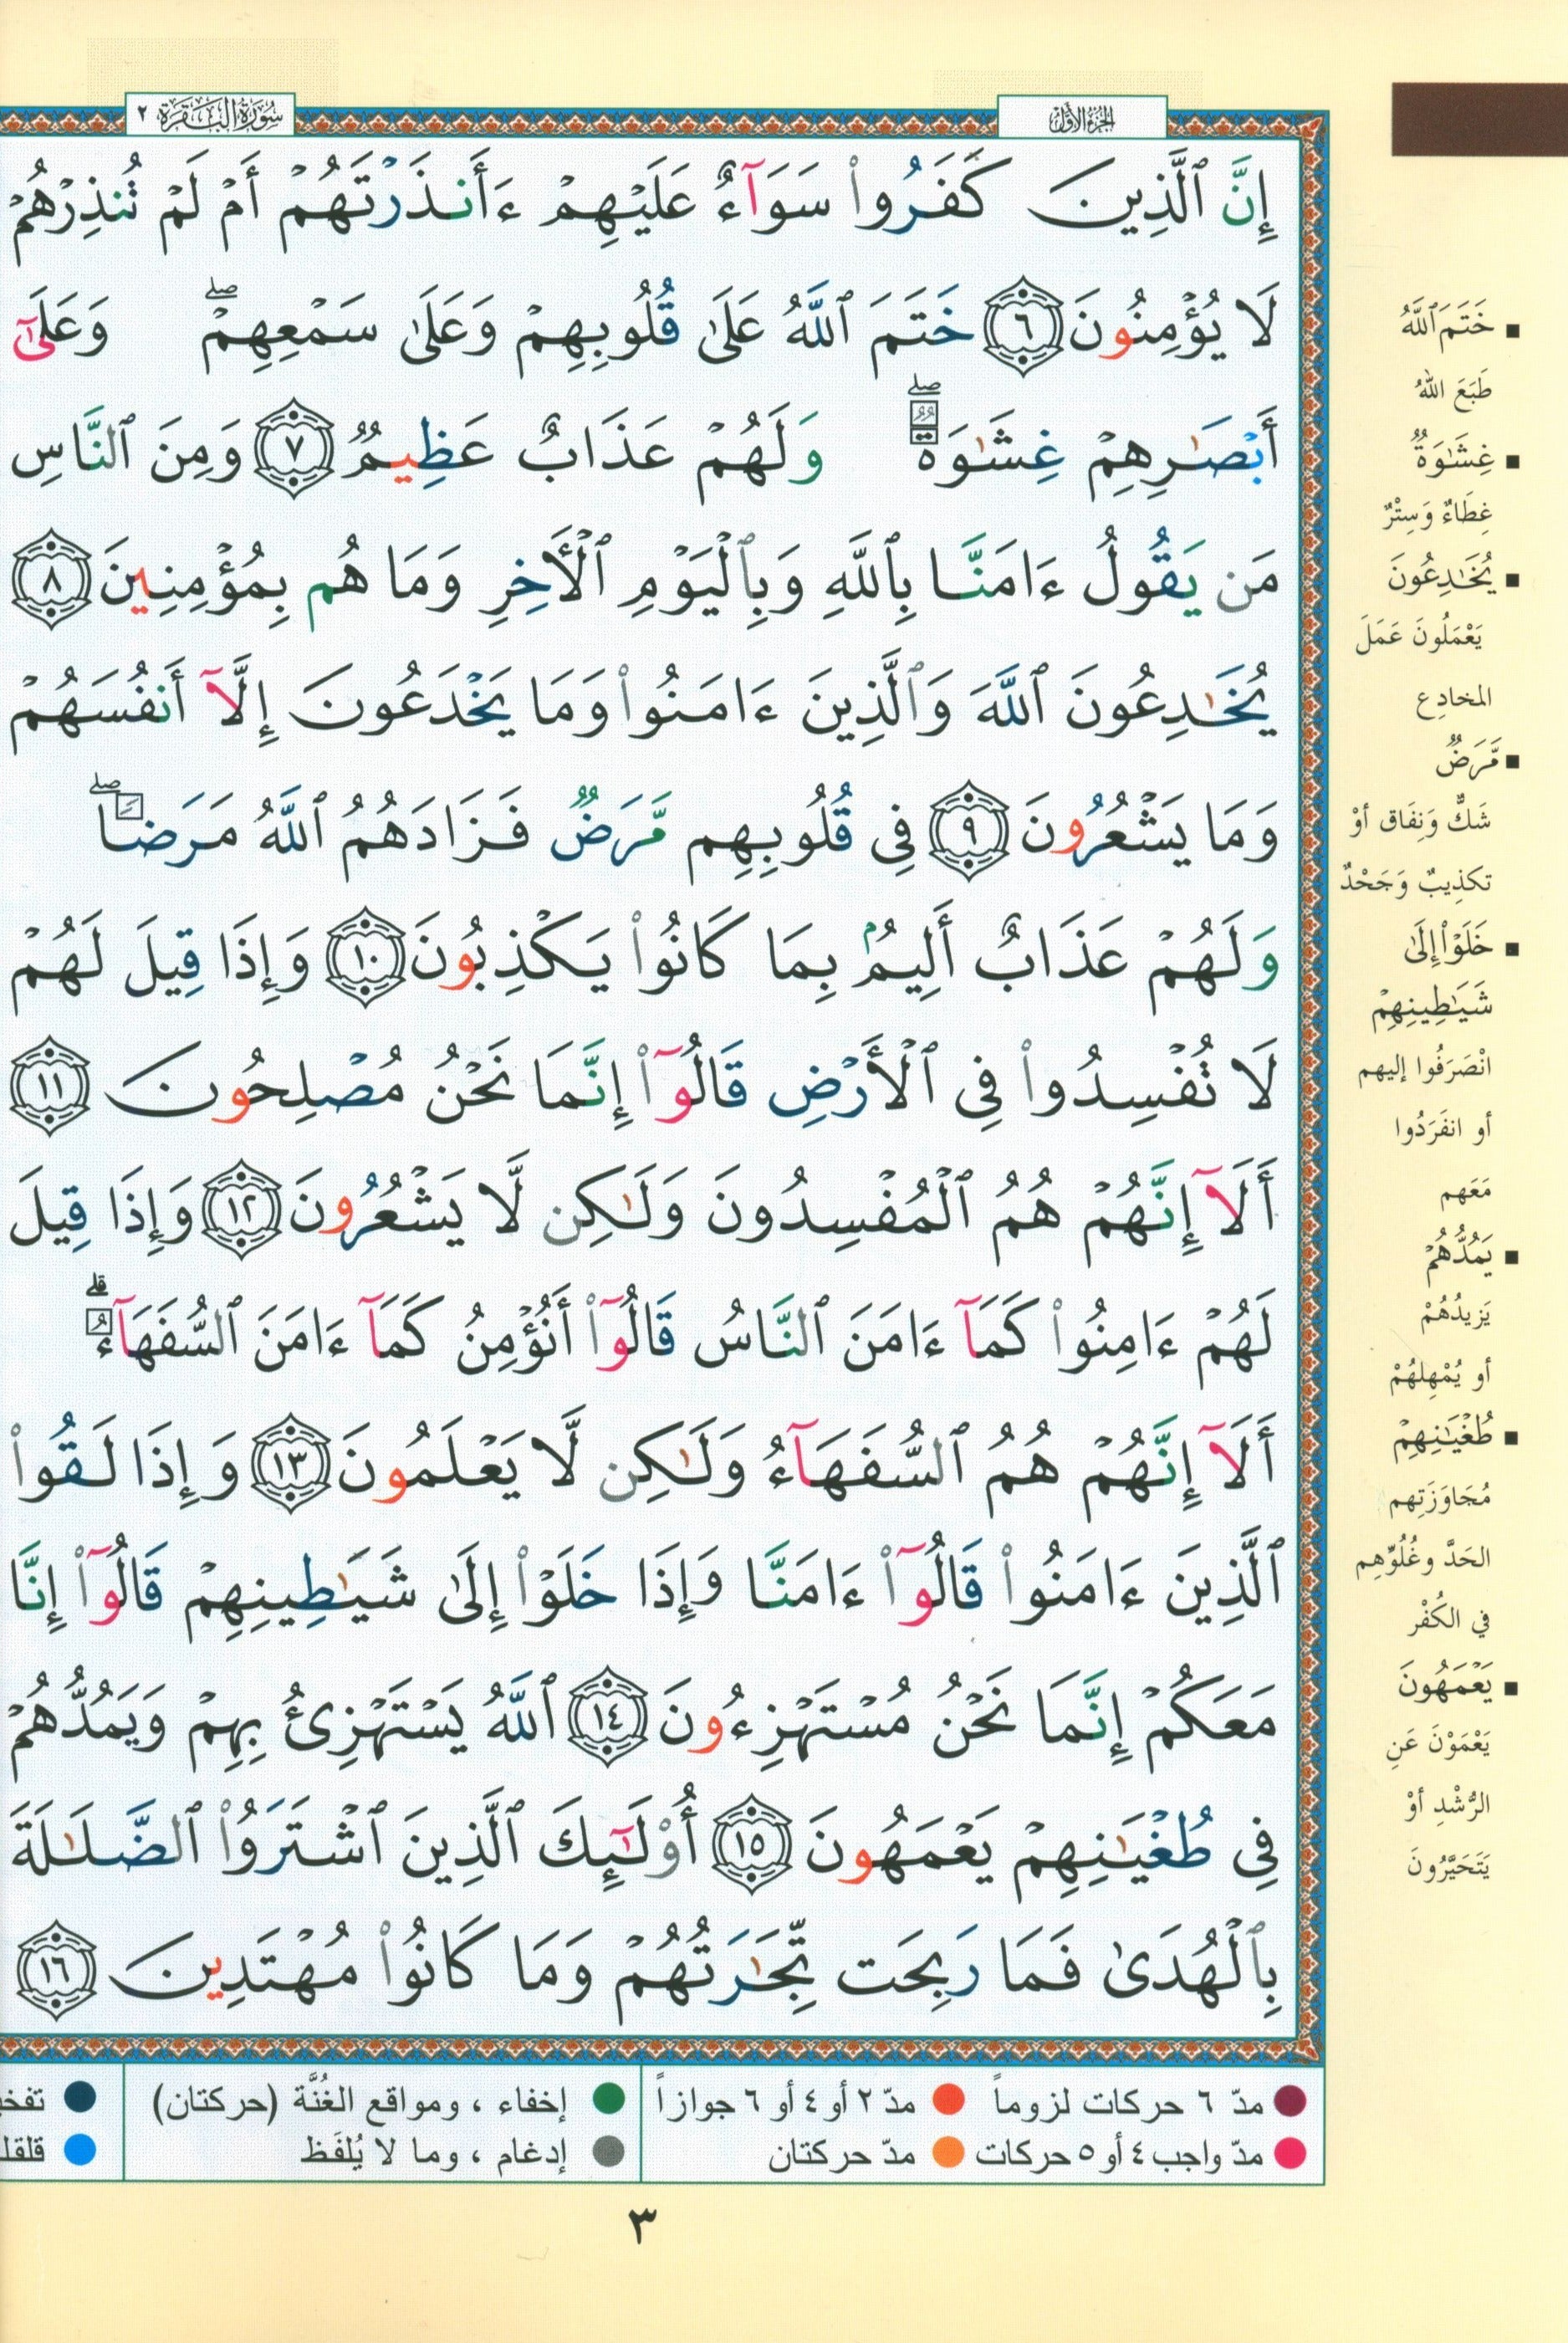 الجزء الأول
سورة البقرة ٢
إِنَّ ٱلَّذِينَ كَفَرُوا۟ سَوَآءٌ عَلَيْهِمْ ءَأَنذَرْتَهُمْ أَمْ لَمْ تُنذِرْهُمْ
لَا يُؤْمِنُونَ ٦ خَتَمَ ٱللَّهُ عَلَىٰ قُلُوبِهِمْ وَعَلَىٰ سَمْعِهِمْ ۖ وَعَلَىٰٓ
أَبْصَـٰرِهِمْ غِشَـٰوَةٌ ۖ وَلَهُمْ عَذَابٌ عَظِيمٌ ٧ وَمِنَ ٱلنَّاسِ
مَن يَقُولُ ءَامَنَّا بِٱللَّهِ وَبِٱلْيَوْمِ ٱلْأَخِرِ وَمَا هُم بِمُؤْمِنِينَ ٨
يُخَـٰدِعُونَ ٱللَّهَ وَٱلَّذِينَ ءَامَنُوا۟ وَمَا يَخْدَعُونَ إِلَّآ أَنفُسَهُمْ
وَمَا يَشْعُرُونَ ٩ فِى قُلُوبِهِم مَّرَضٌ فَزَادَهُمُ ٱللَّهُ مَرَضًا ۖ
وَلَهُمْ عَذَابٌ أَلِيمٌۢ بِمَا كَانُوا۟ يَكْذِبُونَ ١٠ وَإِذَا قِيلَ لَهُمْ
لَا تُفْسِدُوا۟ فِى ٱلْأَرْضِ قَالُوٓا۟ إِنَّمَا نَحْنُ مُصْلِحُونَ ١١
أَلَآ إِنَّهُمْ هُمُ ٱلْمُفْسِدُونَ وَلَـٰكِن لَّا يَشْعُرُونَ ١٢ وَإِذَا قِيلَ
لَهُمْ ءَامِنُوا۟ كَمَآ ءَامَنَ ٱلنَّاسُ قَالُوٓا۟ أَنُؤْمِنُ كَمَآ ءَامَنَ ٱلسُّفَهَآءُ ۗ
أَلَآ إِنَّهُمْ هُمُ ٱلسُّفَهَآءُ وَلَـٰكِن لَّا يَعْلَمُونَ ١٣ وَإِذَا لَقُوا۟
ٱلَّذِينَ ءَامَنُوا۟ قَالُوٓا۟ ءَامَنَّا وَإِذَا خَلَوْا۟ إِلَىٰ شَيَـٰطِينِهِمْ قَالُوٓا۟ إِنَّا
مَعَكُمْ إِنَّمَا نَحْنُ مُسْتَهْزِءُونَ ١٤ ٱللَّهُ يَسْتَهْزِئُ بِهِمْ وَيَمُدُّهُمْ
فِى طُغْيَـٰنِهِمْ يَعْمَهُونَ ١٥ أُو۟لَـٰٓئِكَ ٱلَّذِينَ ٱشْتَرَوُا۟ ٱلضَّلَـٰلَةَ
بِٱلْهُدَىٰ فَمَا رَبِحَت تِّجَـٰرَتُهُمْ وَمَا كَانُوا۟ مُهْتَدِينَ ١٦
خَتَمَ ٱللَّهُ
طَبَعَ اللهُ
غِشَـٰوَةٌ
غِطَاءٌ وَسِتْرٌ
يُخَـٰدِعُونَ
يَعْمَلُونَ عَمَلَ
المخادِع
مَّرَضٌ
شَكٌّ وَنِفَاق أوْ
تكذِيبٌ وَجَحْدٌ
خَلَوْا۟ إِلَىٰ
شَيَـٰطِينِهِمْ
انْصَرَفُوا إليهم
أو انفَرَدُوا
مَعَهم
يَمُدُّهُمْ
يَزيدُهُمْ
أو يُمْهِلهُمْ
طُغْيَـٰنِهِمْ
مُجَاوَزَتِهم
الحَدَّ وغُلُوِّهِم
في الكُفْر
يَعْمَهُونَ
يَعْمَوْنَ عَنِ
الرُّشْدِ أوْ
يَتَحَيَّرُونَ
مدّ ٦ حركات لزوماً مدّ ٢ أو ٤ أو ٦ جوازاً إخفاء ، ومواقع الغُنَّة (حركتان)
مدّ واجب ٤ أو ٥ حركات مدّ حركتان إدغام ، وما لا يُلفَظ
٣